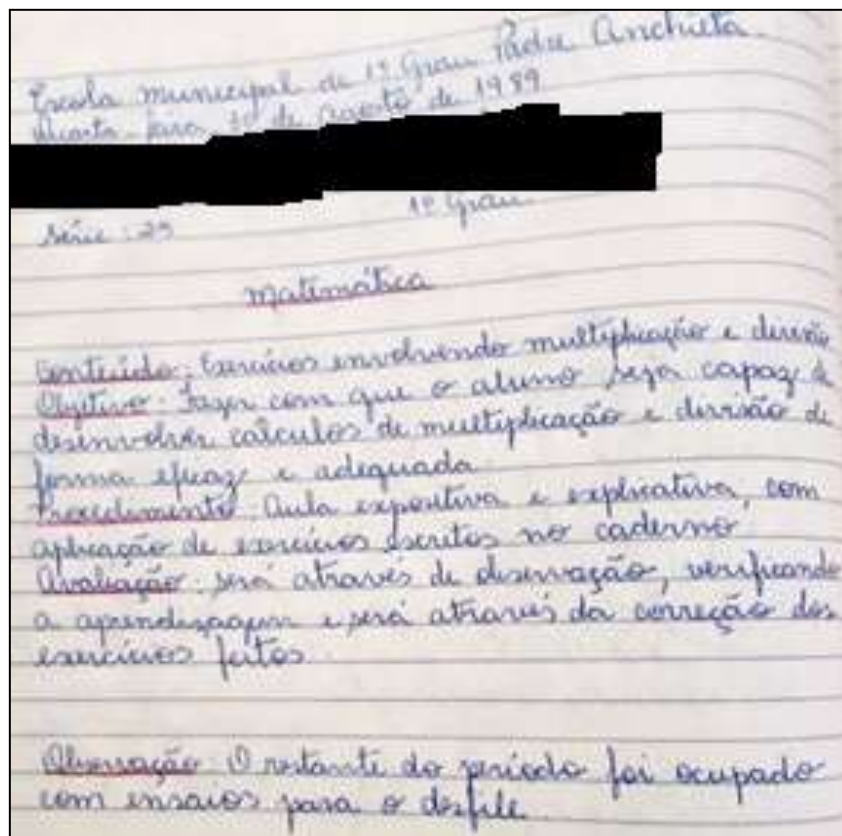 Escola municipal de 1º Grau Padre Anchieta
Quarta-feira 30 de Agosto de 1989
1º Grau
Série: 2ª
Matemática
Conteúdo: Exercícios envolvendo multiplicação e divisão
Objetivo: Fazer com que o aluno seja capaz de
desenvolver cálculos de multiplicação e divisão de
forma eficaz e adequada
Procedimento: Aula expositiva e explicativa, com
aplicação de exercícios escritos no caderno
Avaliação: será através de observação, verificando
a aprendizagem e será através da correção dos
exercícios feitos.
Observação: O restante do período foi ocupado
com ensaios para o desfile.